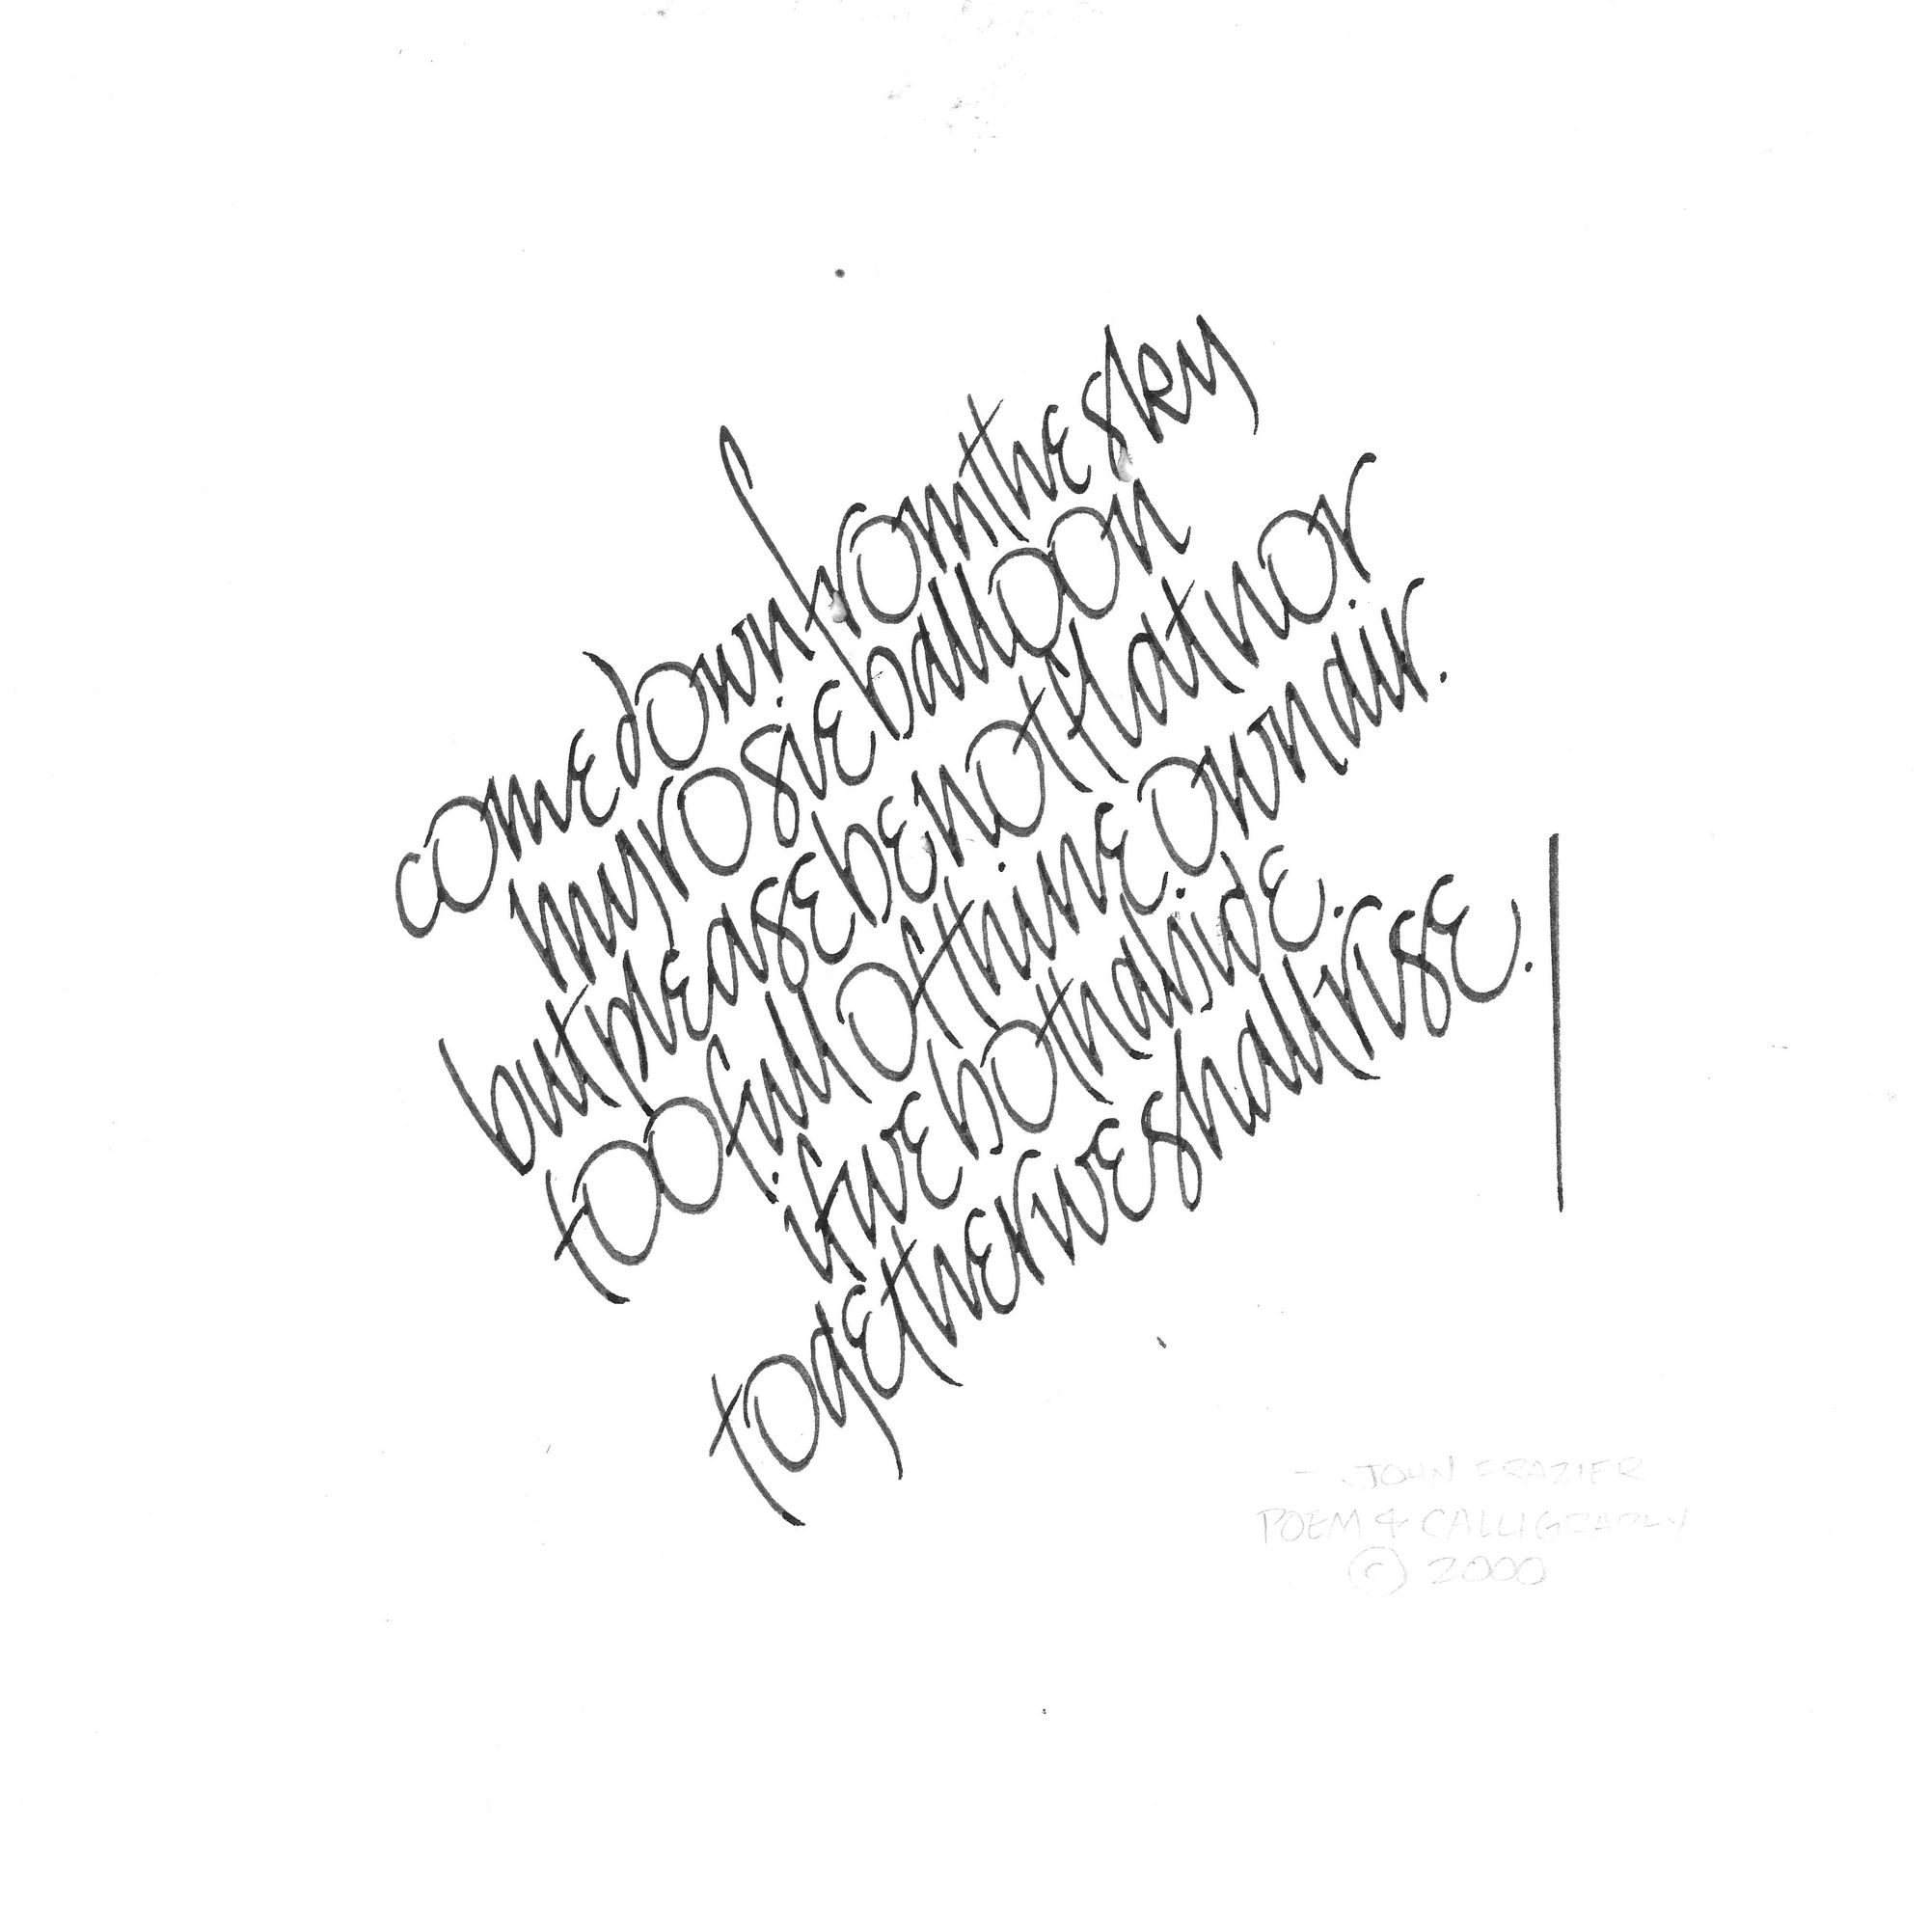 come down from the sky
my rosie balloon
but please be not flat nor
too full of thine own air.
if we both abide.
together we shall rise.
— JOHN FRAZIER
POEM & CALLIGRAPHY
© 2000